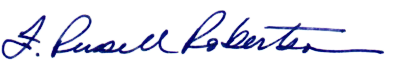 F. Russell Robertson